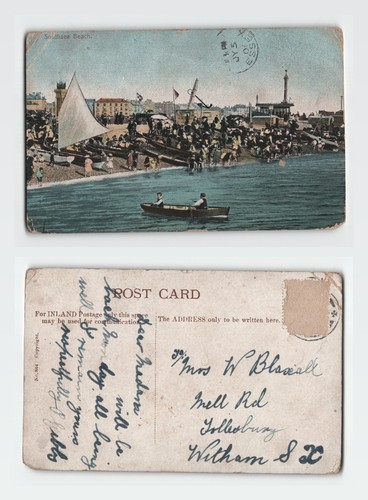 Southsea Beach.
ESSEX
JY 5
10
POST CARD
For INLAND Postage only this space
may be used for communication.
The ADDRESS only to be written here.
No. 894 Copyright.
Dear Madam
will be
back Sunday all being
well I remain yours
respectfully S
To
Mrs W Blaxall
Mell Rd
Tollesbury
Witham S X